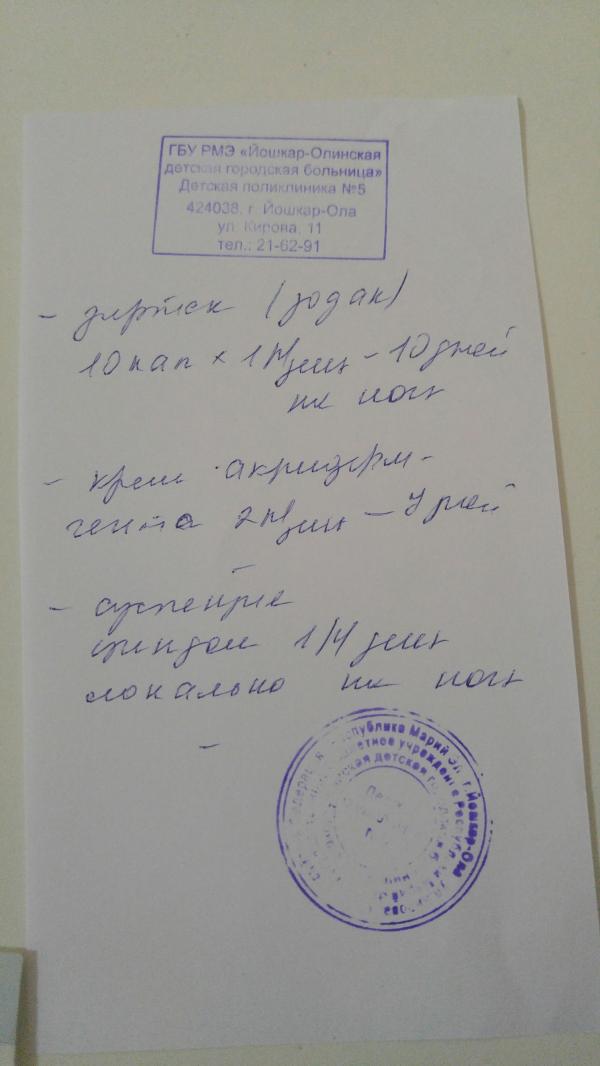 ГБУ РМЭ «Йошкар-Олинская
детская городская больница»
Детская поликлиника №5
424038, г. Йошкар-Ола
ул. Кирова, 11
тел.: 21-62-91
- зиртек (зодак)
10 кап х 1 р/день - 10 дней
на ночь
- крем акридерм-
гента 2 р/день - 7 дней
- суспензия
циндол 1 р/день
локально на ночь
-
Республика Марий Эл г. Йошкар-Ола
учреждение Республ
детской гор